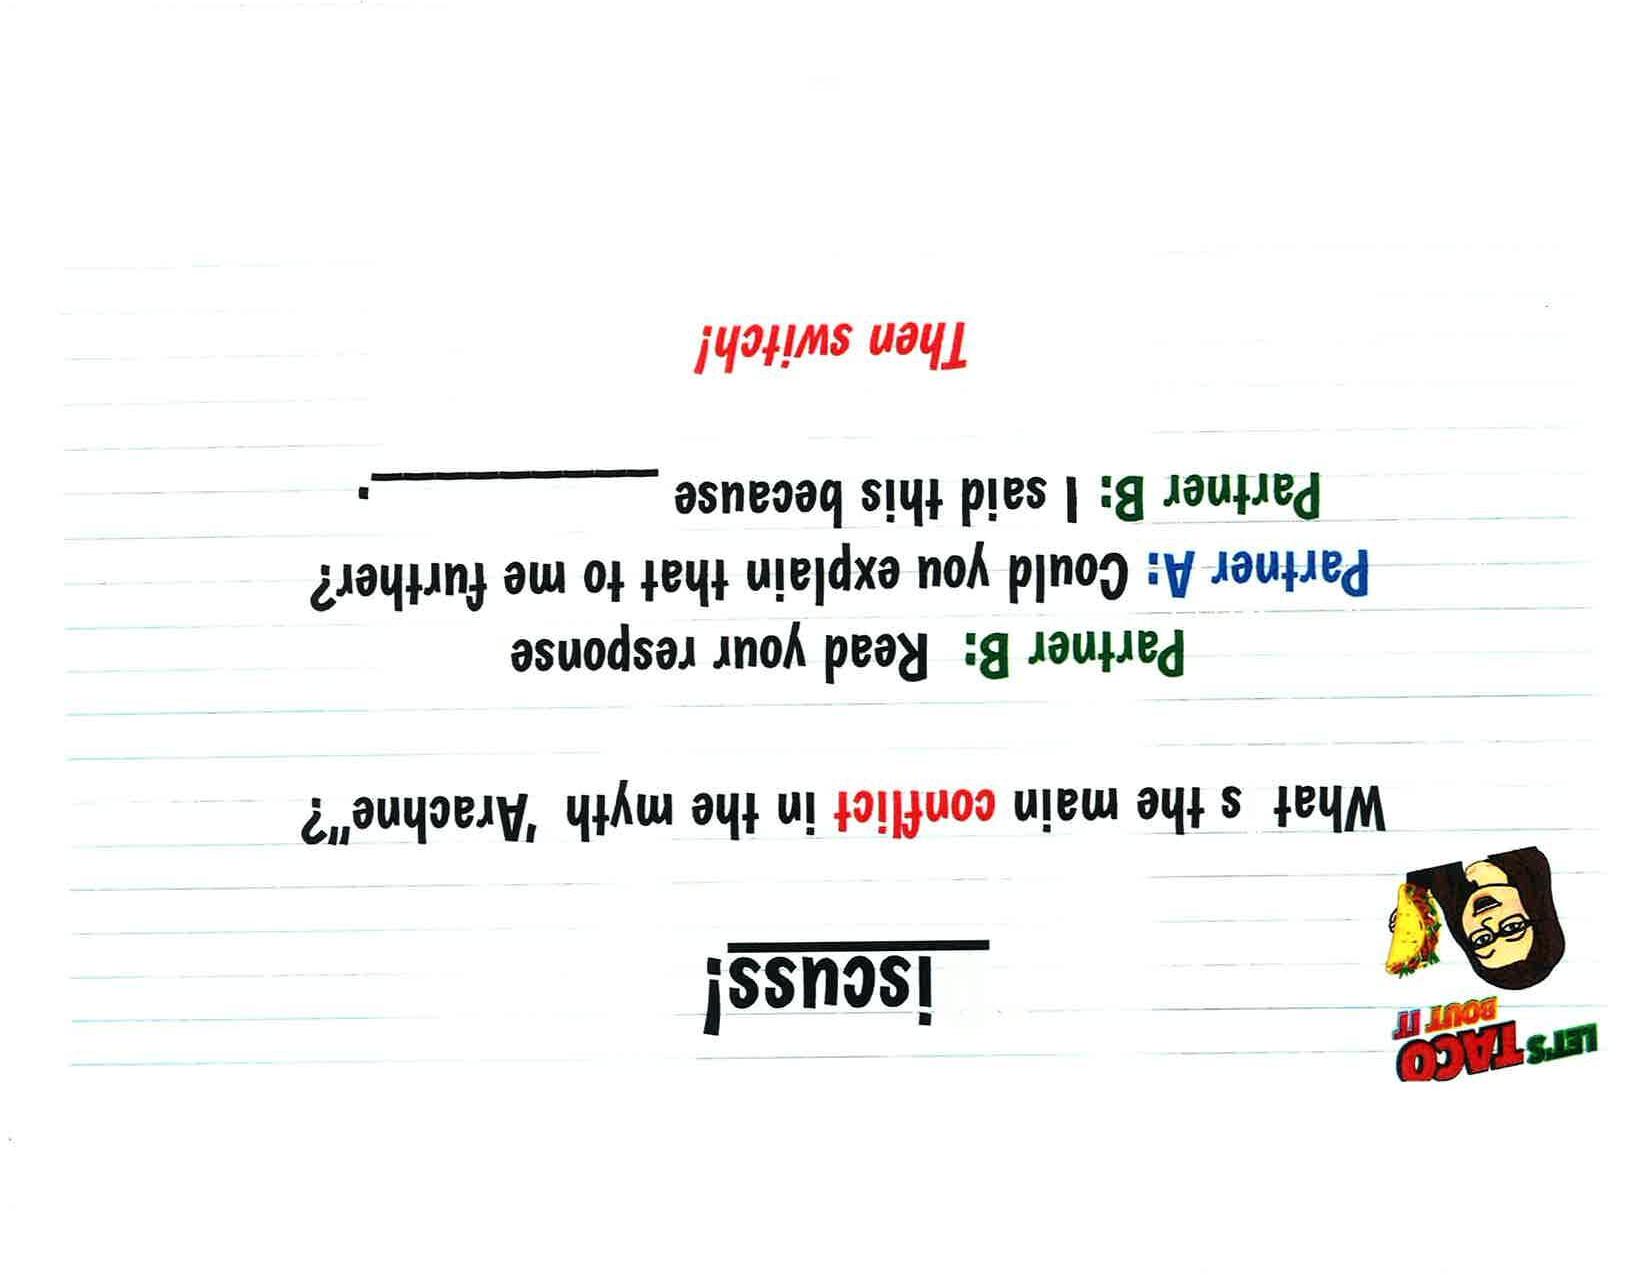 LET'S TACO
BOUT IT
iscuss!
What s the main conflict in the myth 'Arachne"?
Partner B: Read your response
Partner A: Could you explain that to me further?
Partner B: I said this because ____________.
Then switch!